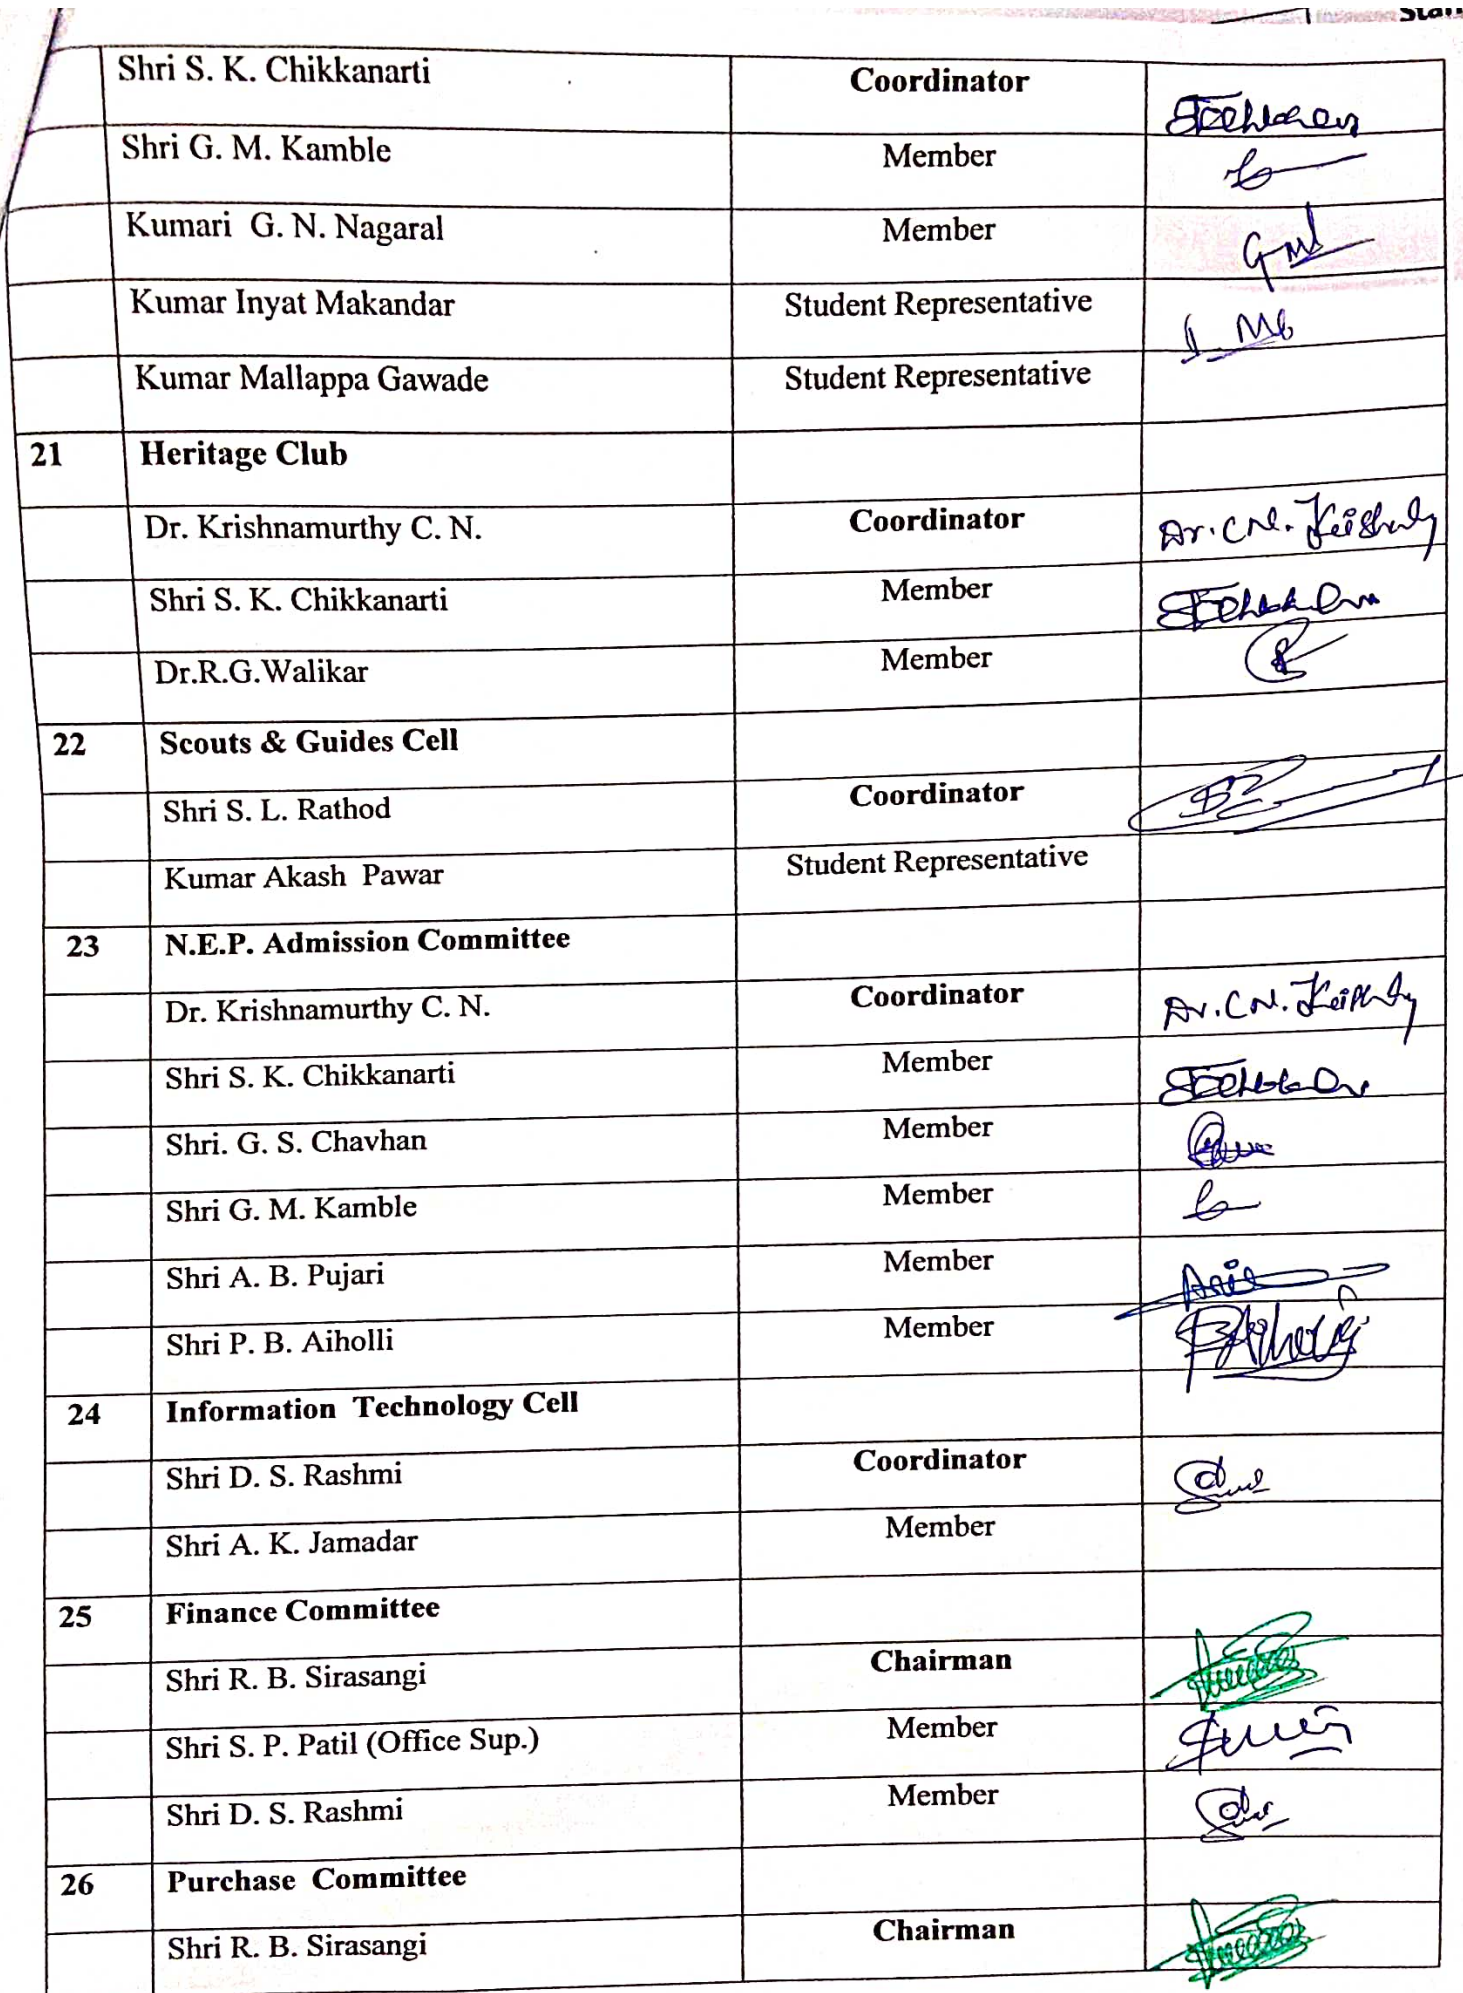 Shri S. K. Chikkanarti Coordinator
Shri G. M. Kamble Member
Kumari G. N. Nagaral Member
Kumar Inyat Makandar Student Representative
Kumar Mallappa Gawade Student Representative
21 Heritage Club
Dr. Krishnamurthy C. N. Coordinator Dr. C.N.
Shri S. K. Chikkanarti Member
Dr.R.G.Walikar Member
22 Scouts & Guides Cell
Shri S. L. Rathod Coordinator
Kumar Akash Pawar Student Representative
23 N.E.P. Admission Committee
Dr. Krishnamurthy C. N. Coordinator Dr. C.N.
Shri S. K. Chikkanarti Member
Shri. G. S. Chavhan Member
Shri G. M. Kamble Member
Shri A. B. Pujari Member
Shri P. B. Aiholli Member
24 Information Technology Cell
Shri D. S. Rashmi Coordinator
Shri A. K. Jamadar Member
25 Finance Committee
Shri R. B. Sirasangi Chairman
Shri S. P. Patil (Office Sup.) Member
Shri D. S. Rashmi Member
26 Purchase Committee
Shri R. B. Sirasangi Chairman